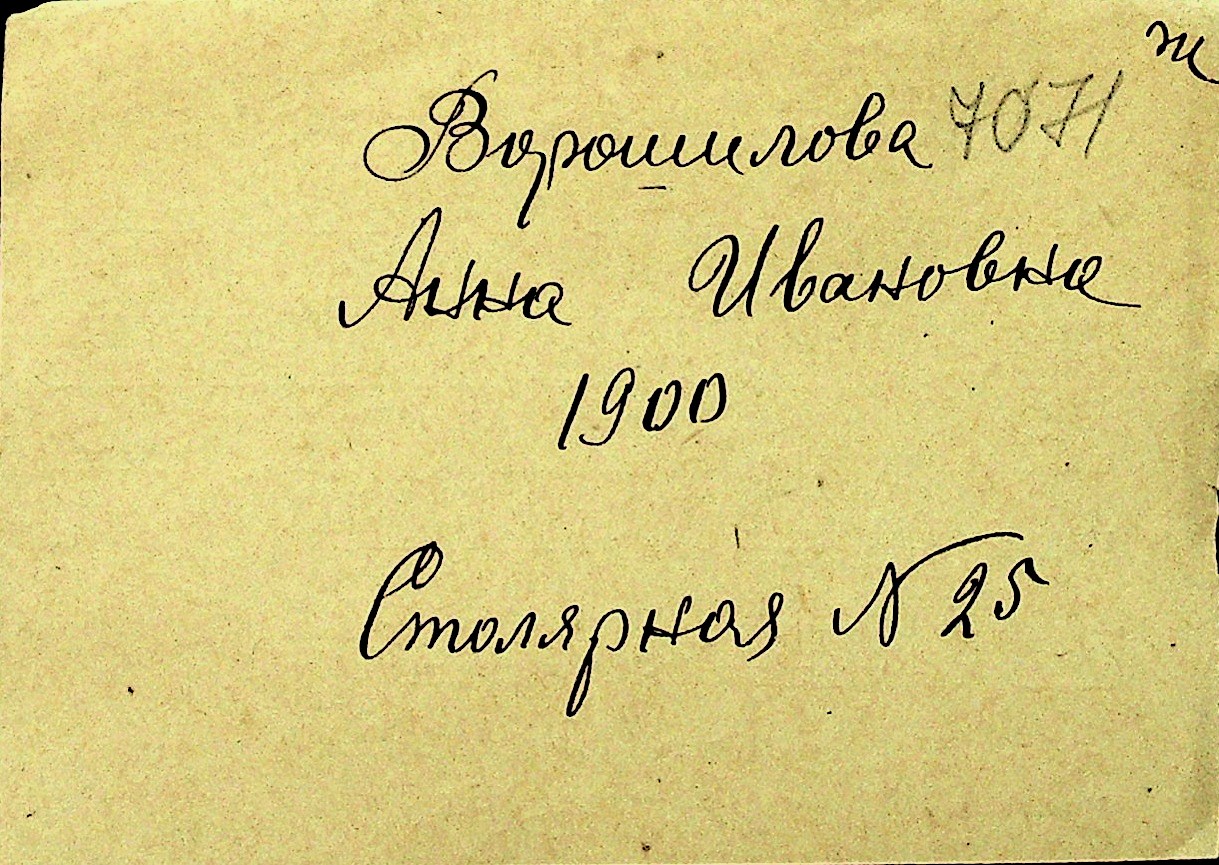 ж
Ворошилова 7071
Анна Ивановна
1900
Столярная N 25